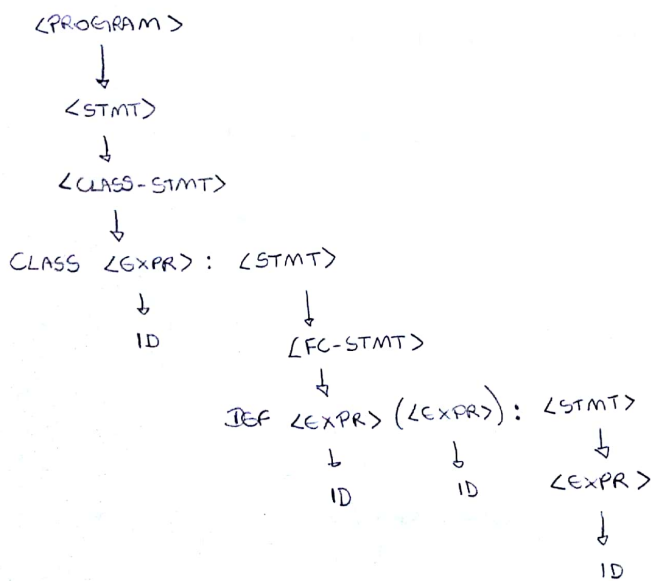 <PROGRAM>
<STMT>
<CLASS-STMT>
CLASS <EXPR> : <STMT>
ID
<FC-STMT>
DEF <EXPR> (<EXPR>) : <STMT>
ID ID <EXPR>
ID